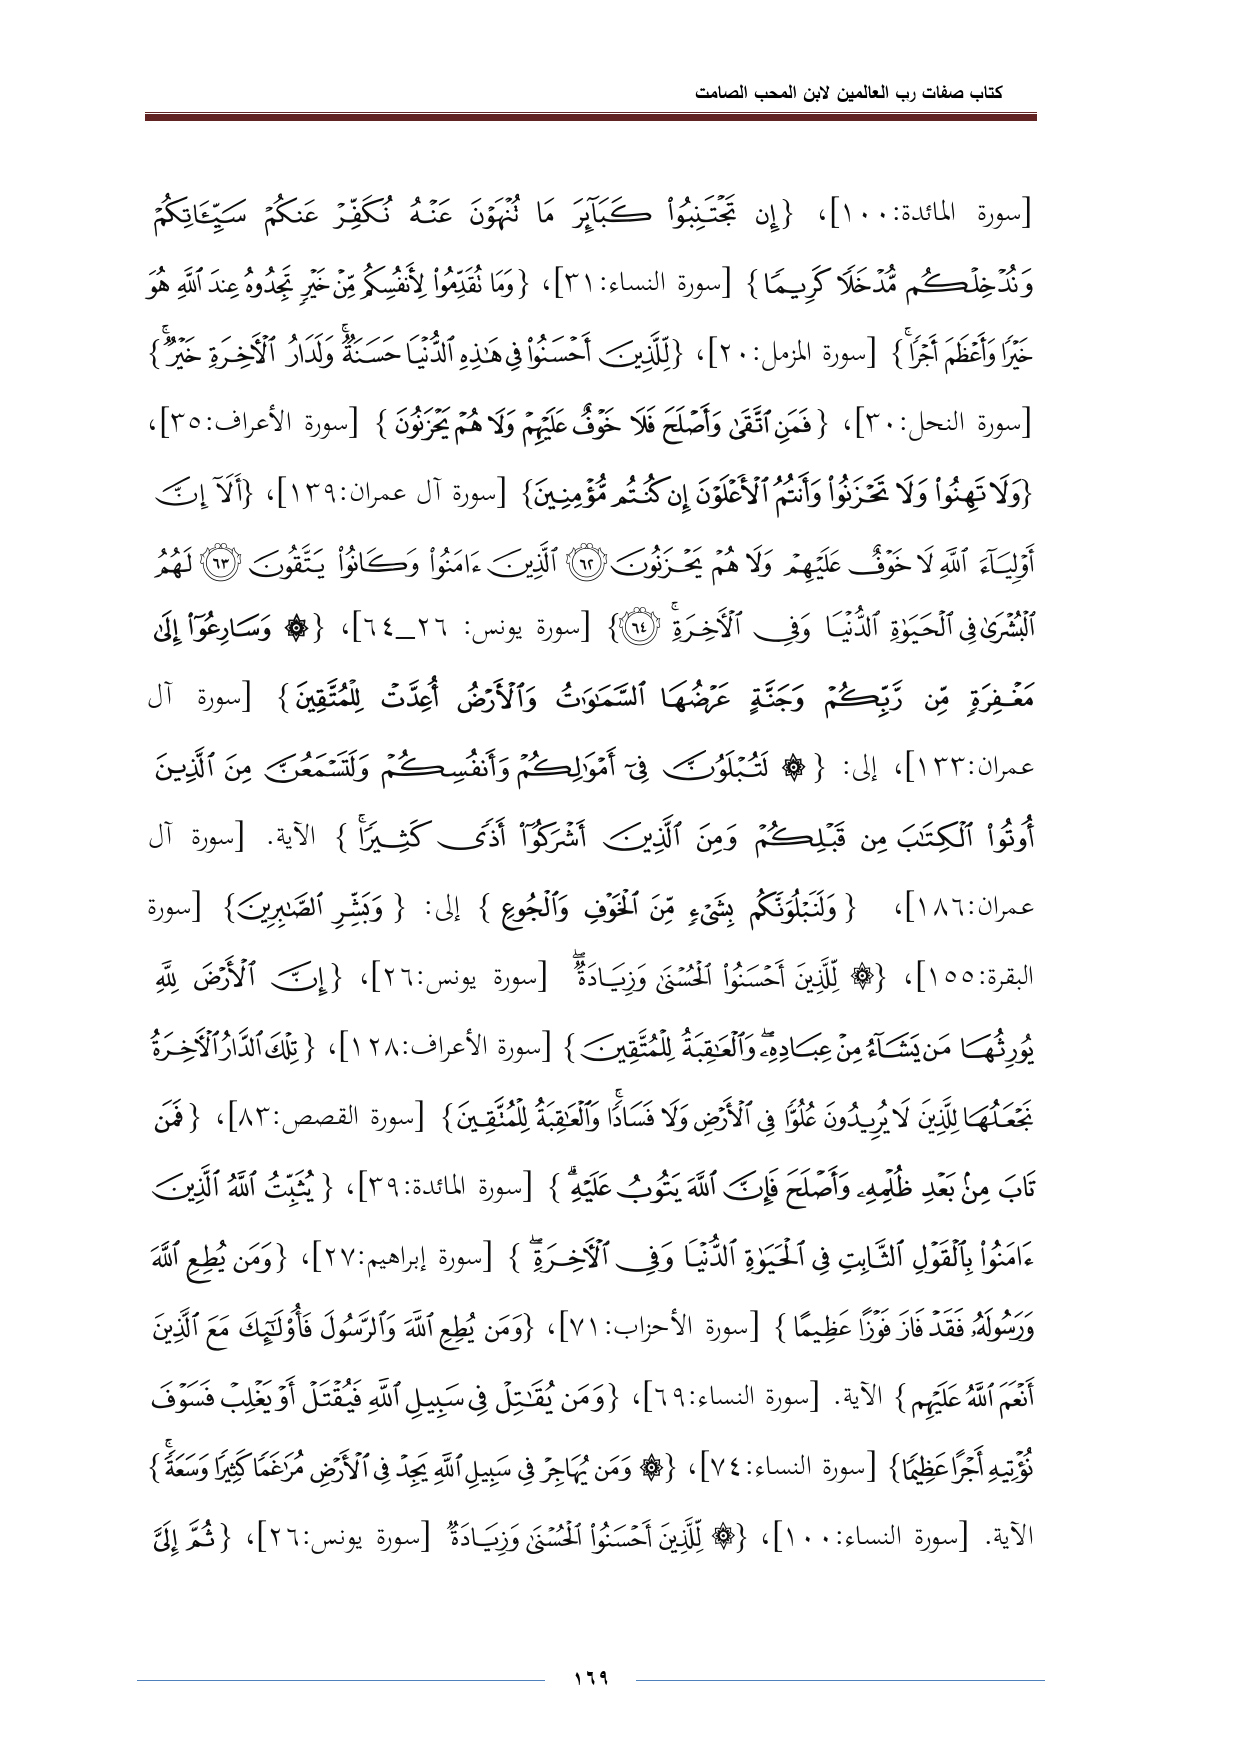 كتاب صفات رب العالمين لابن المحب الصامت
[سورة المائدة:١٠٠]، {إِن تَجۡتَنِبُواْ كَبَآئِرَ مَا تُنۡهَوۡنَ عَنۡهُ نُكَفِّرۡ عَنكُمۡ سَيِّـَٔاتِكُمۡ
وَنُدۡخِلۡكُم مُّدۡخَلٗا كَرِيمٗا} [سورة النساء:٣١]، {وَمَا تُقَدِّمُواْ لِأَنفُسِكُم مِّنۡ خَيۡرٖ تَجِدُوهُ عِندَ ٱللَّهِ هُوَ
خَيۡرٗا وَأَعۡظَمَ أَجۡرٗاۚ} [سورة المزمل:٢٠]، {لِّلَّذِينَ أَحۡسَنُواْ فِي هَٰذِهِ ٱلدُّنۡيَا حَسَنَةٞۚ وَلَدَارُ ٱلۡأٓخِرَةِ خَيۡرٞۚ}
[سورة النحل:٣٠]، {فَمَنِ ٱتَّقَىٰ وَأَصۡلَحَ فَلَا خَوۡفٌ عَلَيۡهِمۡ وَلَا هُمۡ يَحۡزَنُونَ } [سورة الأعراف:٣٥]،
{وَلَا تَهِنُواْ وَلَا تَحۡزَنُواْ وَأَنتُمُ ٱلۡأَعۡلَوۡنَ إِن كُنتُم مُّؤۡمِنِينَ} [سورة آل عمران:١٣٩]، {أَلَآ إِنَّ
أَوۡلِيَآءَ ٱللَّهِ لَا خَوۡفٌ عَلَيۡهِمۡ وَلَا هُمۡ يَحۡزَنُونَ ٦٢ ٱلَّذِينَ ءَامَنُواْ وَكَانُواْ يَتَّقُونَ ٦٣ لَهُمُ
ٱلۡبُشۡرَىٰ فِي ٱلۡحَيَوٰةِ ٱلدُّنۡيَا وَفِي ٱلۡأٓخِرَةِۚ ٦٤} [سورة يونس: ٢٦_٦٤]، {۞ وَسَارِعُوٓاْ إِلَىٰ
مَغۡفِرَةٖ مِّن رَّبِّكُمۡ وَجَنَّةٍ عَرۡضُهَا ٱلسَّمَٰوَٰتُ وَٱلۡأَرۡضُ أُعِدَّتۡ لِلۡمُتَّقِينَ } [سورة آل
عمران:١٣٣]، إلى: {۞ لَتُبۡلَوُنَّ فِيٓ أَمۡوَٰلِكُمۡ وَأَنفُسِكُمۡ وَلَتَسۡمَعُنَّ مِنَ ٱلَّذِينَ
أُوتُواْ ٱلۡكِتَٰبَ مِن قَبۡلِكُمۡ وَمِنَ ٱلَّذِينَ أَشۡرَكُوٓاْ أَذٗى كَثِيرٗاۚ } الآية. [سورة آل
عمران:١٨٦]، { وَلَنَبۡلُوَنَّكُم بِشَيۡءٖ مِّنَ ٱلۡخَوۡفِ وَٱلۡجُوعِ } إلى: { وَبَشِّرِ ٱلصَّٰبِرِينَ} [سورة
البقرة:١٥٥]، {۞ لِّلَّذِينَ أَحۡسَنُواْ ٱلۡحُسۡنَىٰ وَزِيَادَةٞۖ [سورة يونس:٢٦]، {إِنَّ ٱلۡأَرۡضَ لِلَّهِ
يُورِثُهَا مَن يَشَآءُ مِنۡ عِبَادِهِۦۖ وَٱلۡعَٰقِبَةُ لِلۡمُتَّقِينَ } [سورة الأعراف:١٢٨]، {تِلۡكَ ٱلدَّارُ ٱلۡأٓخِرَةُ
نَجۡعَلُهَا لِلَّذِينَ لَا يُرِيدُونَ عُلُوّٗا فِي ٱلۡأَرۡضِ وَلَا فَسَادٗاۚ وَٱلۡعَٰقِبَةُ لِلۡمُتَّقِينَ} [سورة القصص:٨٣]، {فَمَن
تَابَ مِنۢ بَعۡدِ ظُلۡمِهِۦ وَأَصۡلَحَ فَإِنَّ ٱللَّهَ يَتُوبُ عَلَيۡهِۗ } [سورة المائدة:٣٩]، { يُثَبِّتُ ٱللَّهُ ٱلَّذِينَ
ءَامَنُواْ بِٱلۡقَوۡلِ ٱلثَّابِتِ فِي ٱلۡحَيَوٰةِ ٱلدُّنۡيَا وَفِي ٱلۡأٓخِرَةِۖ } [سورة إبراهيم:٢٧]، {وَمَن يُطِعِ ٱللَّهَ
وَرَسُولَهُۥ فَقَدۡ فَازَ فَوۡزًا عَظِيمًا } [سورة الأحزاب:٧١]، {وَمَن يُطِعِ ٱللَّهَ وَٱلرَّسُولَ فَأُوْلَٰٓئِكَ مَعَ ٱلَّذِينَ
أَنۡعَمَ ٱللَّهُ عَلَيۡهِم } الآية. [سورة النساء:٦٩]، {وَمَن يُقَٰتِلۡ فِي سَبِيلِ ٱللَّهِ فَيُقۡتَلۡ أَوۡ يَغۡلِبۡ فَسَوۡفَ
نُؤۡتِيهِ أَجۡرًا عَظِيمٗا} [سورة النساء:٧٤]، {۞ وَمَن يُهَاجِرۡ فِي سَبِيلِ ٱللَّهِ يَجِدۡ فِي ٱلۡأَرۡضِ مُرَٰغَمٗا كَثِيرٗا وَسَعَةٗۚ}
الآية. [سورة النساء:١٠٠]، {۞ لِّلَّذِينَ أَحۡسَنُواْ ٱلۡحُسۡنَىٰ وَزِيَادَةٞ [سورة يونس:٢٦]، {ثُمَّ إِلَيَّ
١٦٩